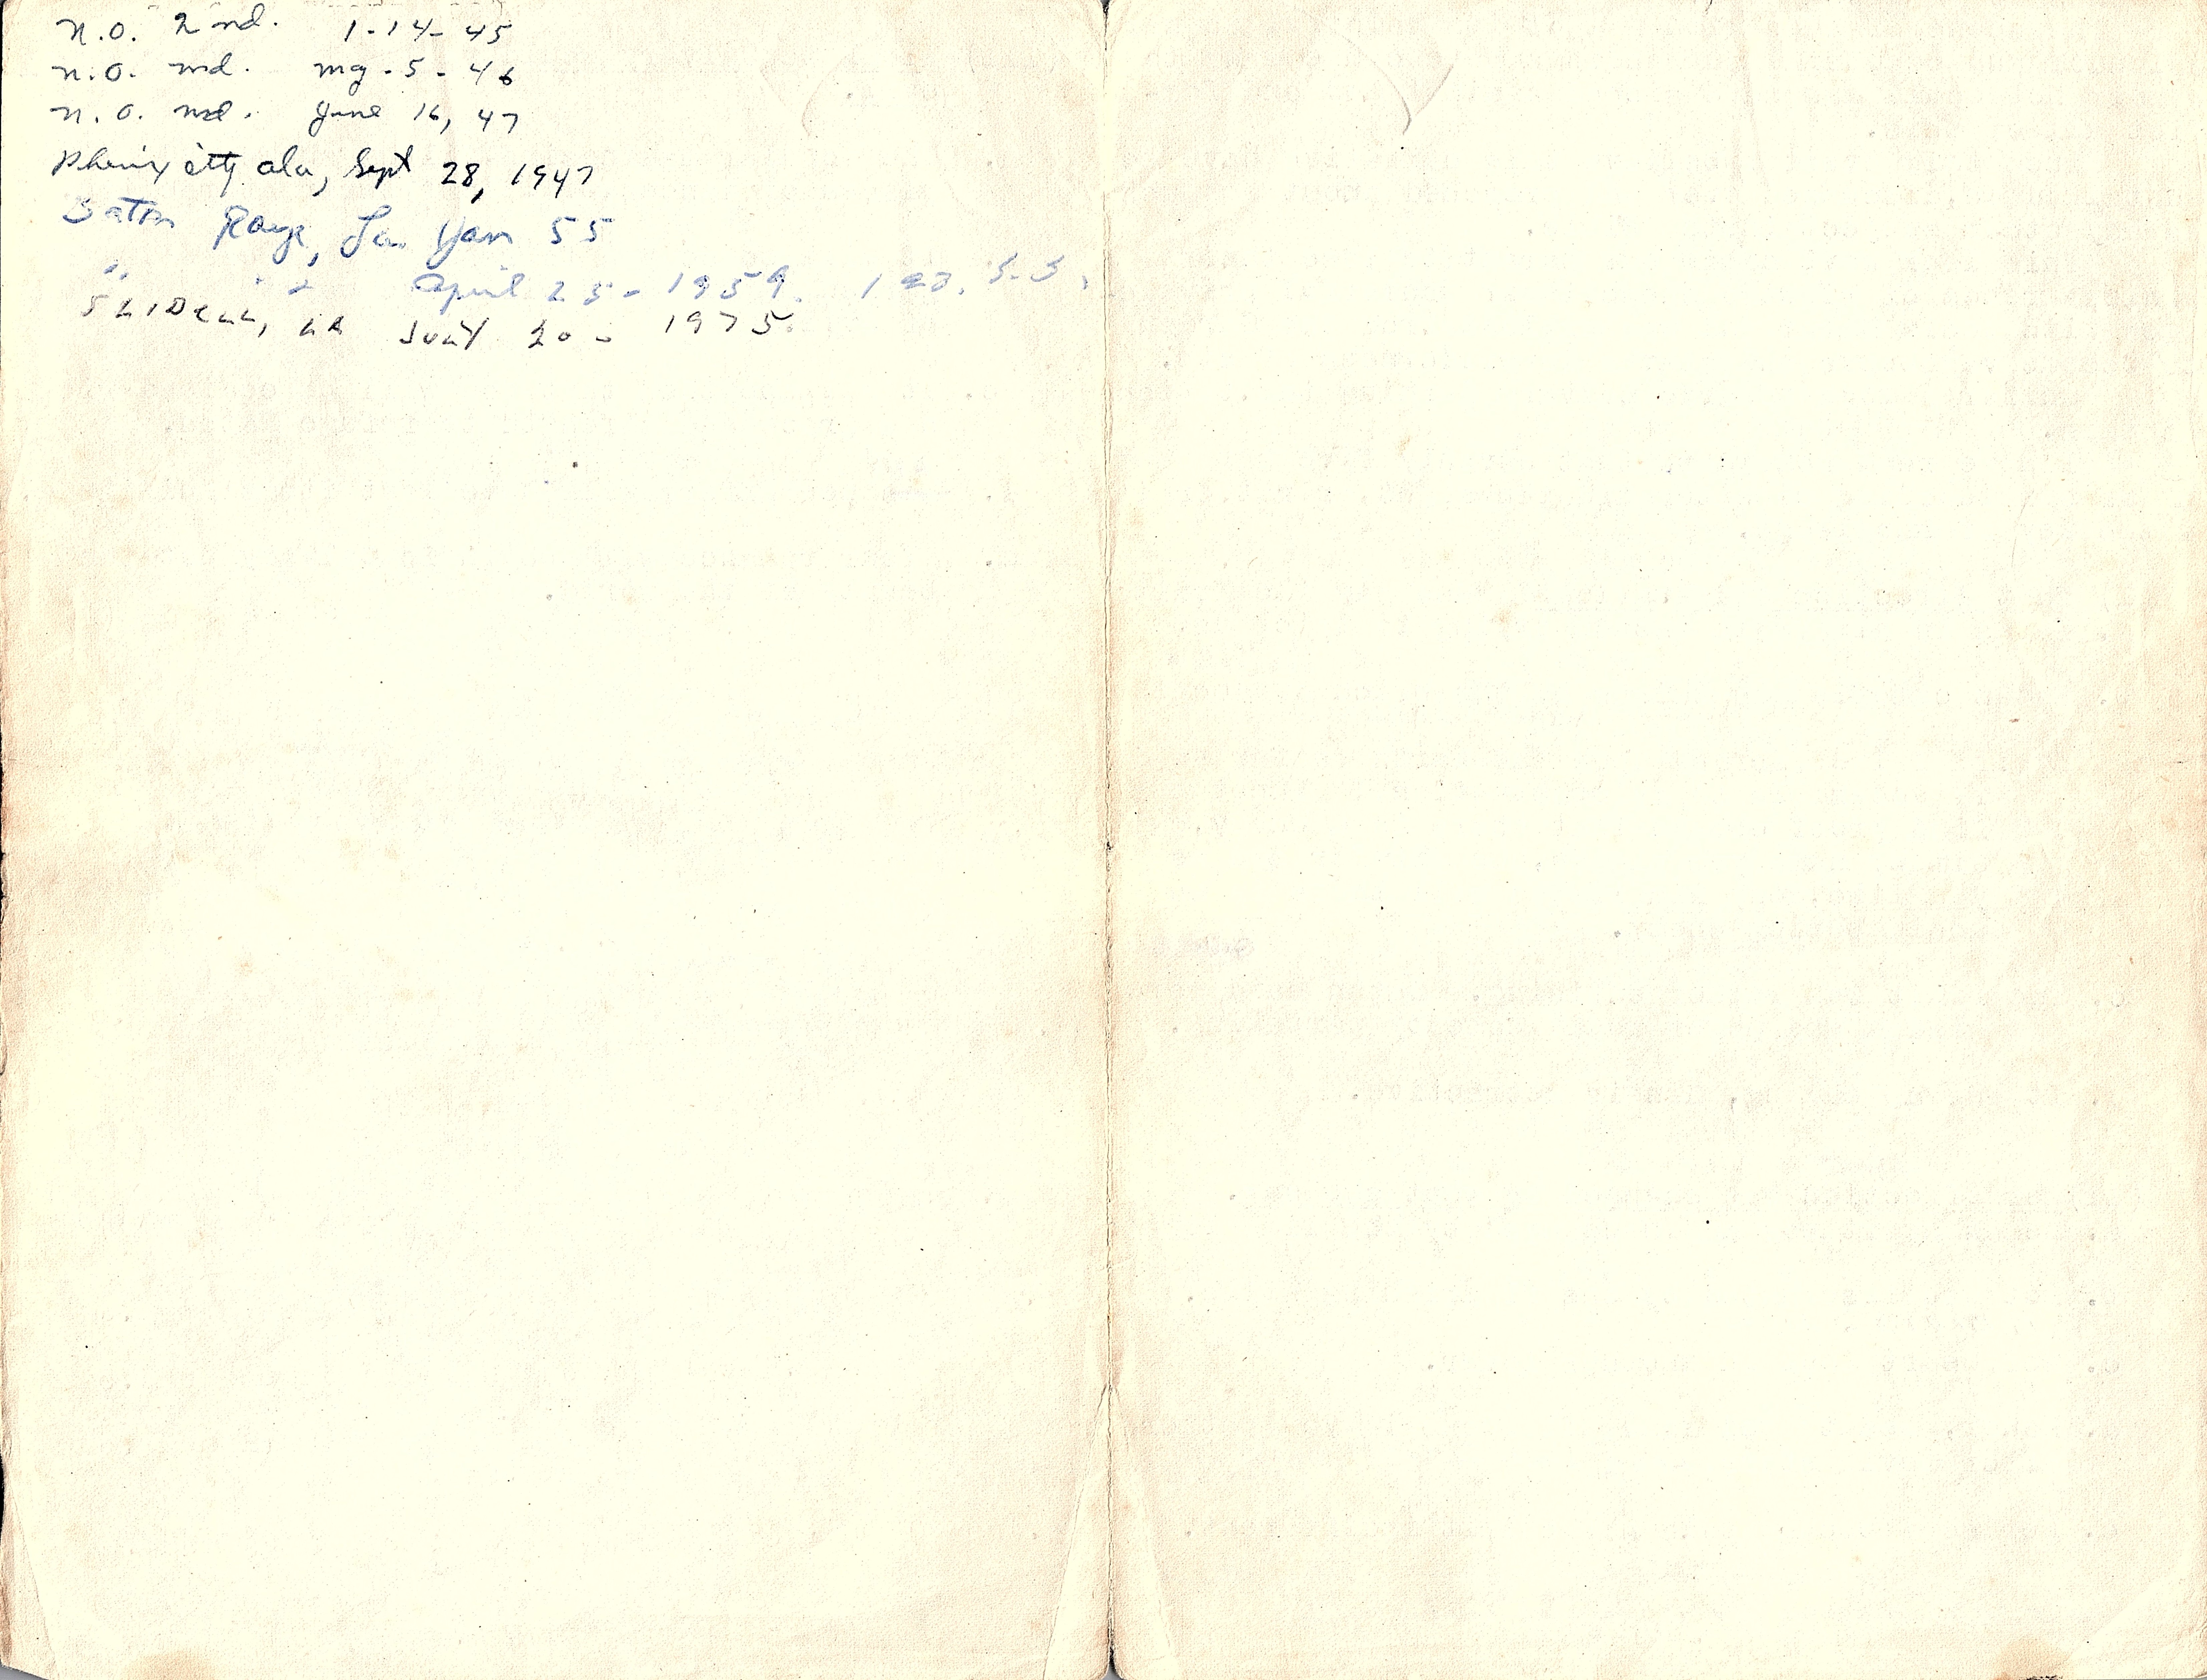 N.O. 2nd. 1-14-45
N.O. md. mg-5-46
N.O. md. June 16, 47
Phenix City Ala, Sept 28, 1947
Baton Rouge, La. Jan 55
" " " April 25-1959. 
SLIDELL, LA JULY 20- 1975.